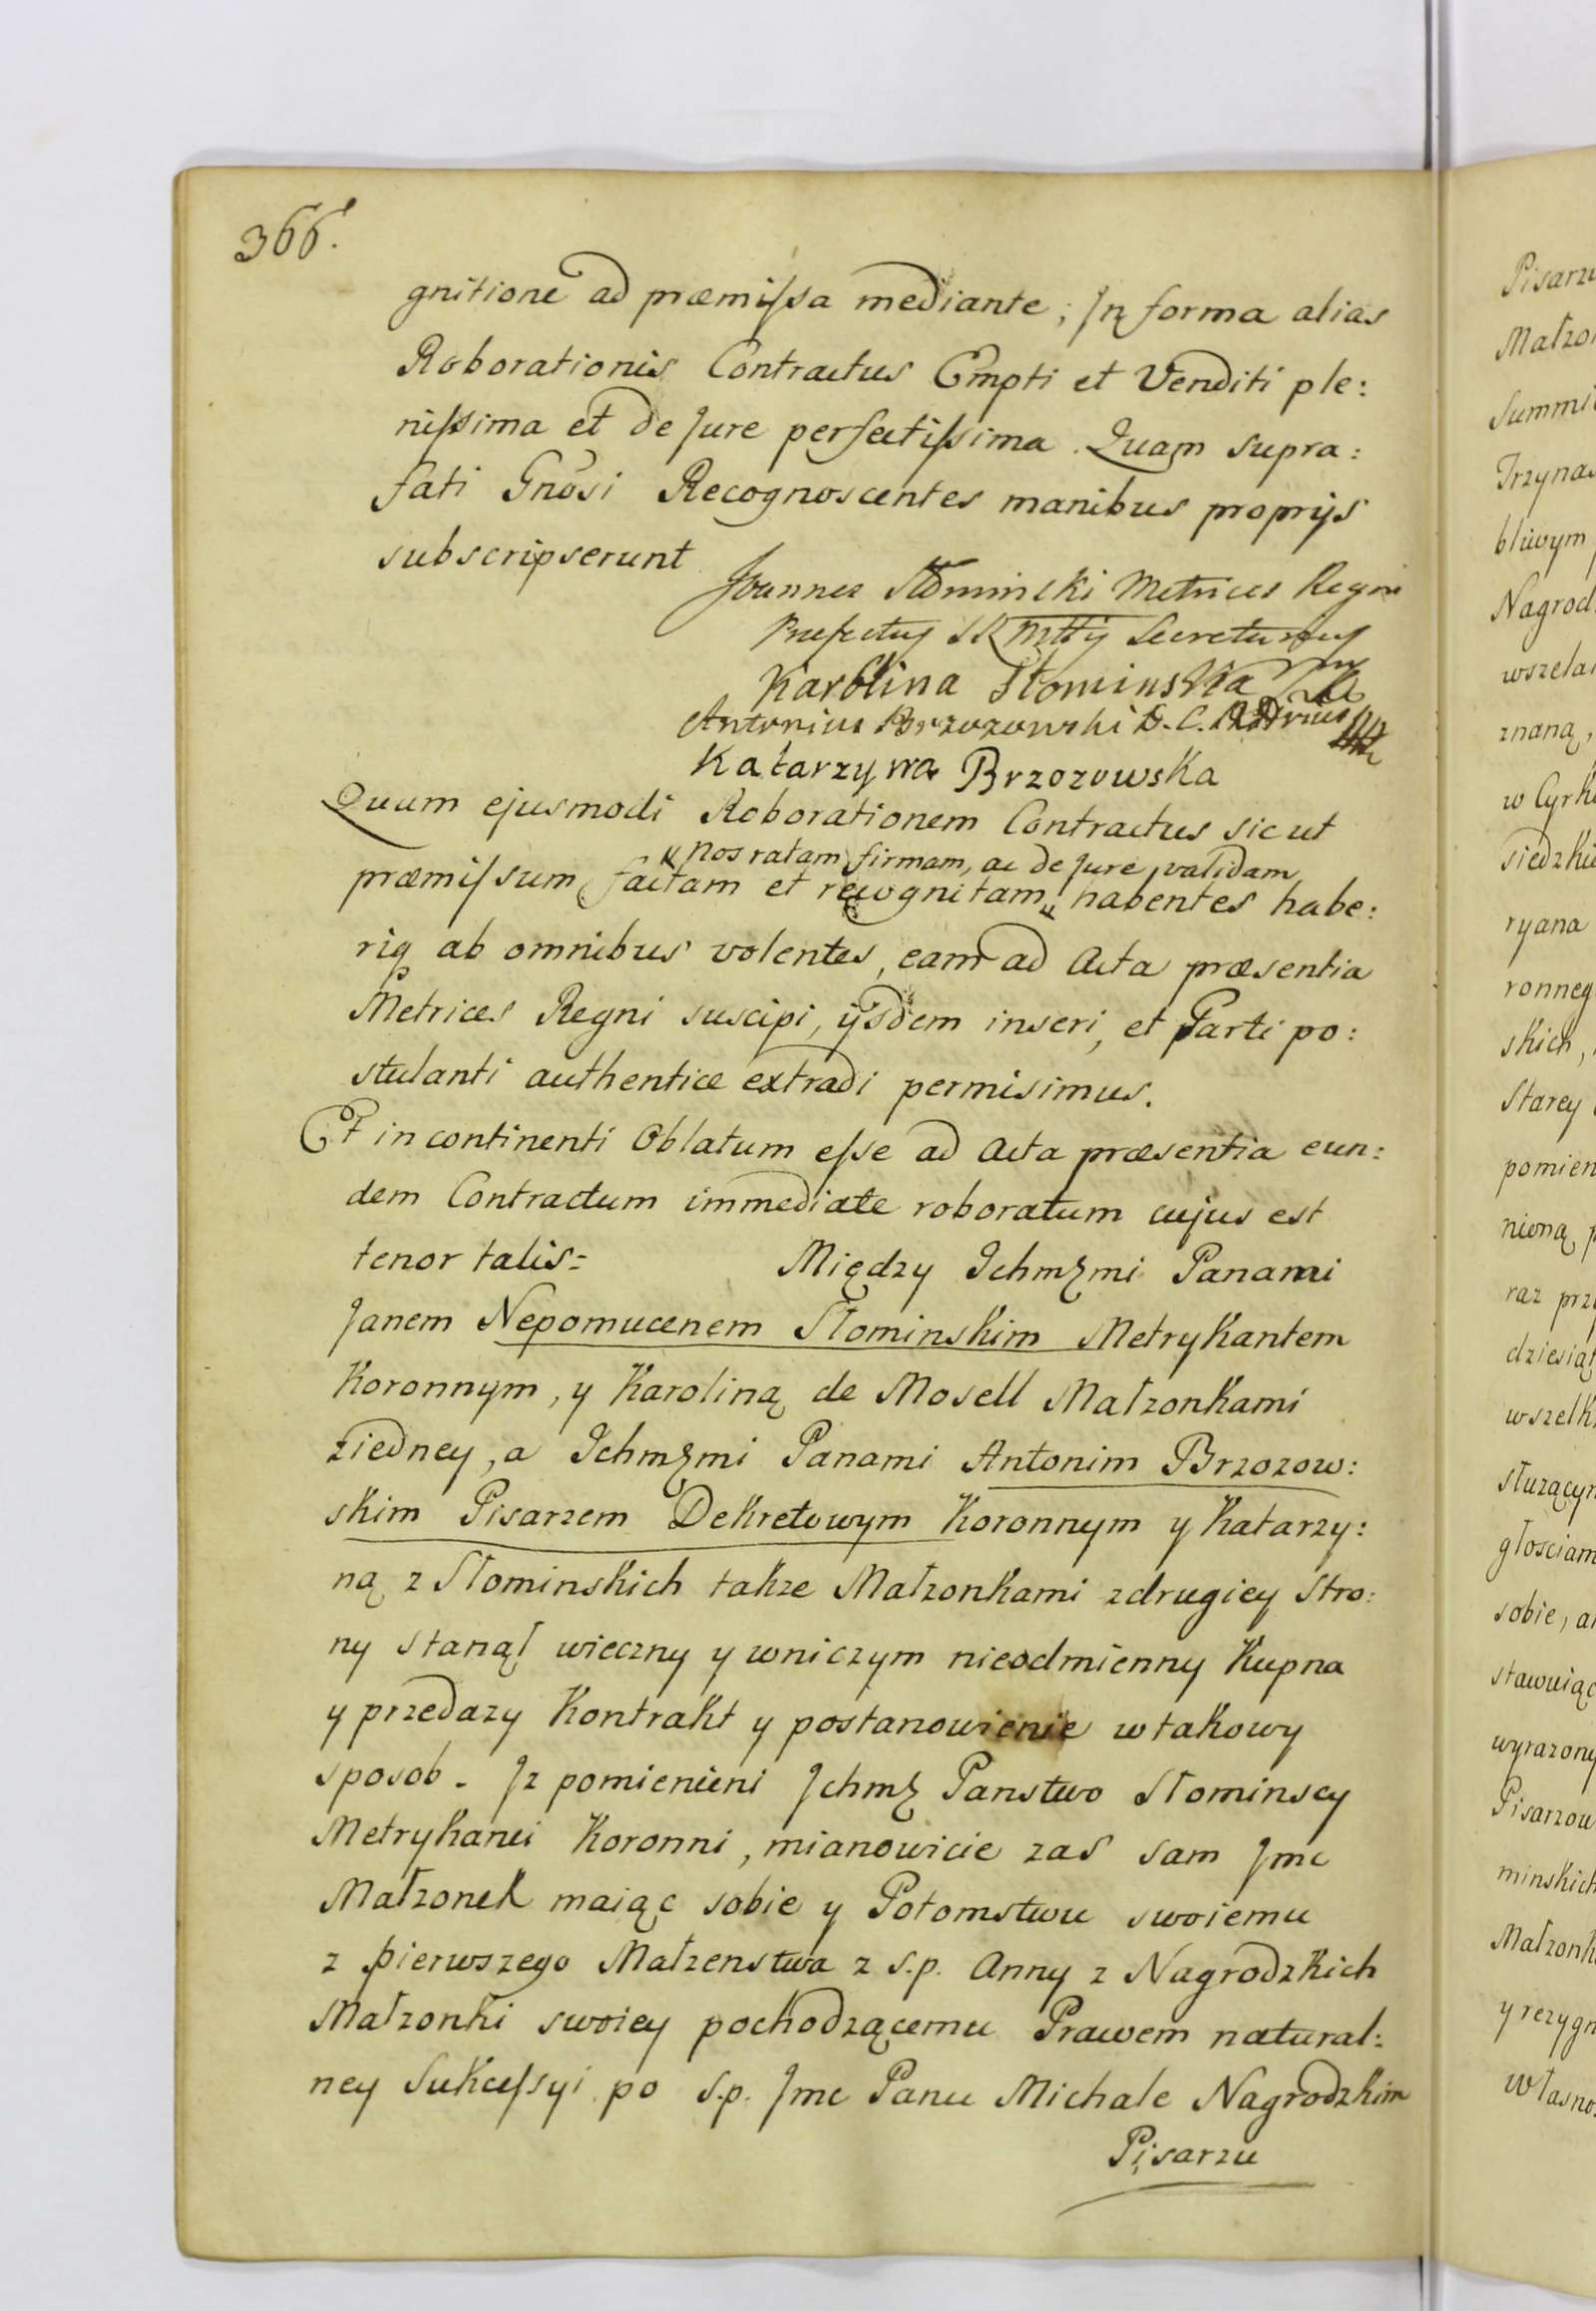 366.
gnitione ad præmissa mediante; In forma alias
Roborationis Contractus Empti et Venditi ple:
nissima et de Jure perfectissima. Quam supra:
fati Gnōsi Recognoscentes manibus proprijs
subscripserunt
Joannes Słominski Metrices Regni
Præfectus SRMtty Secretarius
Karolina Słominska
Antonius Brzozowski D. C.
Katarzyna Brzozowska
Quam ejusmodi Roborationem Contractus sic ut
nos ratam, firmam, ac de Jure validam
præmissum factam et recognitam habentes habe:
riq ab omnibus volentes, eam ad Acta præsentia
Metrices Regni suscipi, ijsdem inseri, et Parti po:
stulanti authentice extradi permisimus.
Et in continenti Oblatum esse ad Acta præsentia eun:
dem Contractum immediate roboratum cujus est
tenor talis= Między Ichmçmi Panami
Janem Nepomucenem Słominskim Metrykantem
Koronnym, y Karoliną de Mosell Małzonkami
ziedney, a Ichmçmi Panami Antonim Brzozow:
skim Pisarzem Dekretowym Koronnym y Katarzy:
ną z Słominskich takze Małzonkami zdrugiey Stro:
ny stanął wieczny y wniczym nieodmienny Kupna
y przedazy Kontrakt y postanowienie wtakowy
sposob. Jz pomienieni Jchmç Panstwo Słominscy
Metrykanci Koronni, mianowicie zas sam Jmc
Małzonek maiąc sobie y Potomstwu swoiemu
z pierwszego Małzenstwa z s.p. Anny z Nagrodzkich
Małzonki swoiey pochodzącemu Prawem natural:
ney Sukcessyi po s.p. Jmc Panu Michale Nagrodzkim
Pisarzu
Pisarzu
Małzon
Summi
Trzynas
bliwym
Nagrod
wszela
znaną,
w Cyrk
siedzki
ryana
ronneg
skich,
Starey
pomien
nioną p
raz prz
dziesiąt
wszelk
słuzącym
głosciam
sobie, a
stawuiąc
wyrazony
Pisarzow
minskich
Małzonk
y rezygn
własno